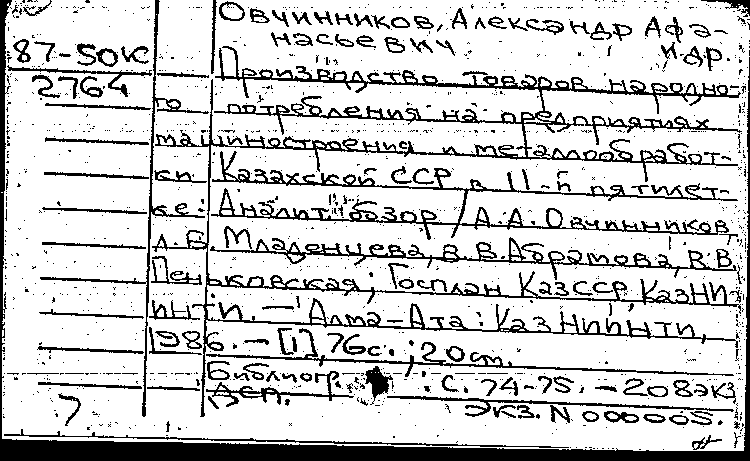 Овчинников, Александр Афа-
насьевич и др.
87-50К
2764
Производство товаров народно-
го потребления на предприятиях
машиностроения и металлообработ-
ки Казахской ССР в 11-й пятилет-
ке: Аналит. обзор / А.А. Овчинников,
Л.В. Младенцева, В.В. Абратова, В.В.
Пеньковская; Госплан КазССР, КазНИ-
ИНТИ. — Алма-Ата: КазНИИНТИ,
1986. — [1], 76с.; 20 см.
Библиогр.: с. 74-75. — 208 экз
Экз. N 000005.